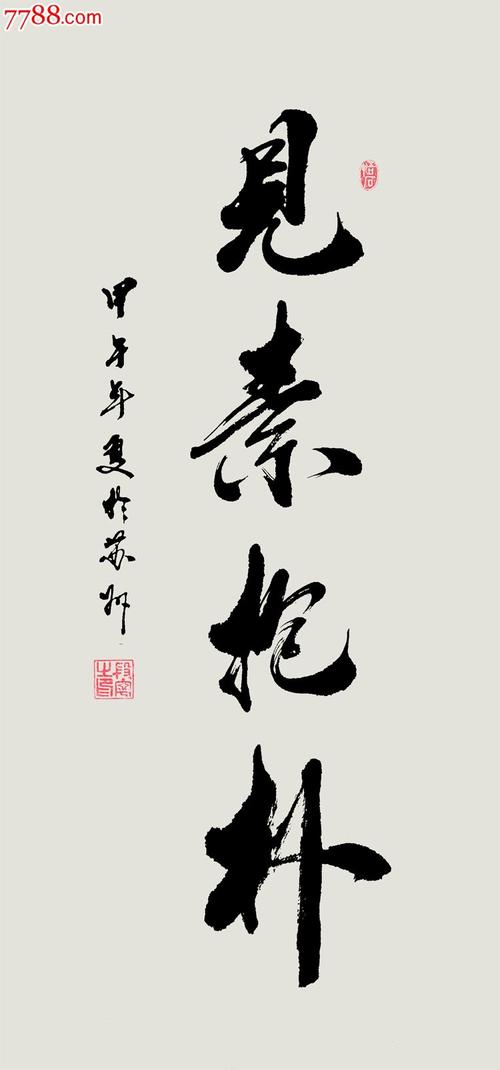 7788.com
見素抱朴
甲午年夏於苏州